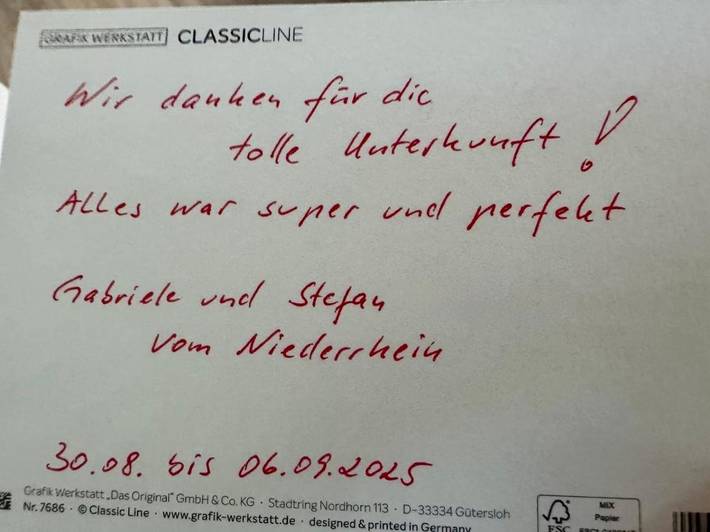 GRAFIK WERKSTATT CLASSICLINE
Wir danken für die
tolle Unterkunft!
Alles war super und perfekt
Gabriele und Stefan
vom Niederrhein
30.08. bis 06.09.2025
Grafik Werkstatt „Das Original“ GmbH & Co. KG · Stadtring Nordhorn 113 · D-33334 Gütersloh
Nr. 7686 · © Classic Line · www.grafik-werkstatt.de · designed & printed in Germany
FSC
MIX
Papier